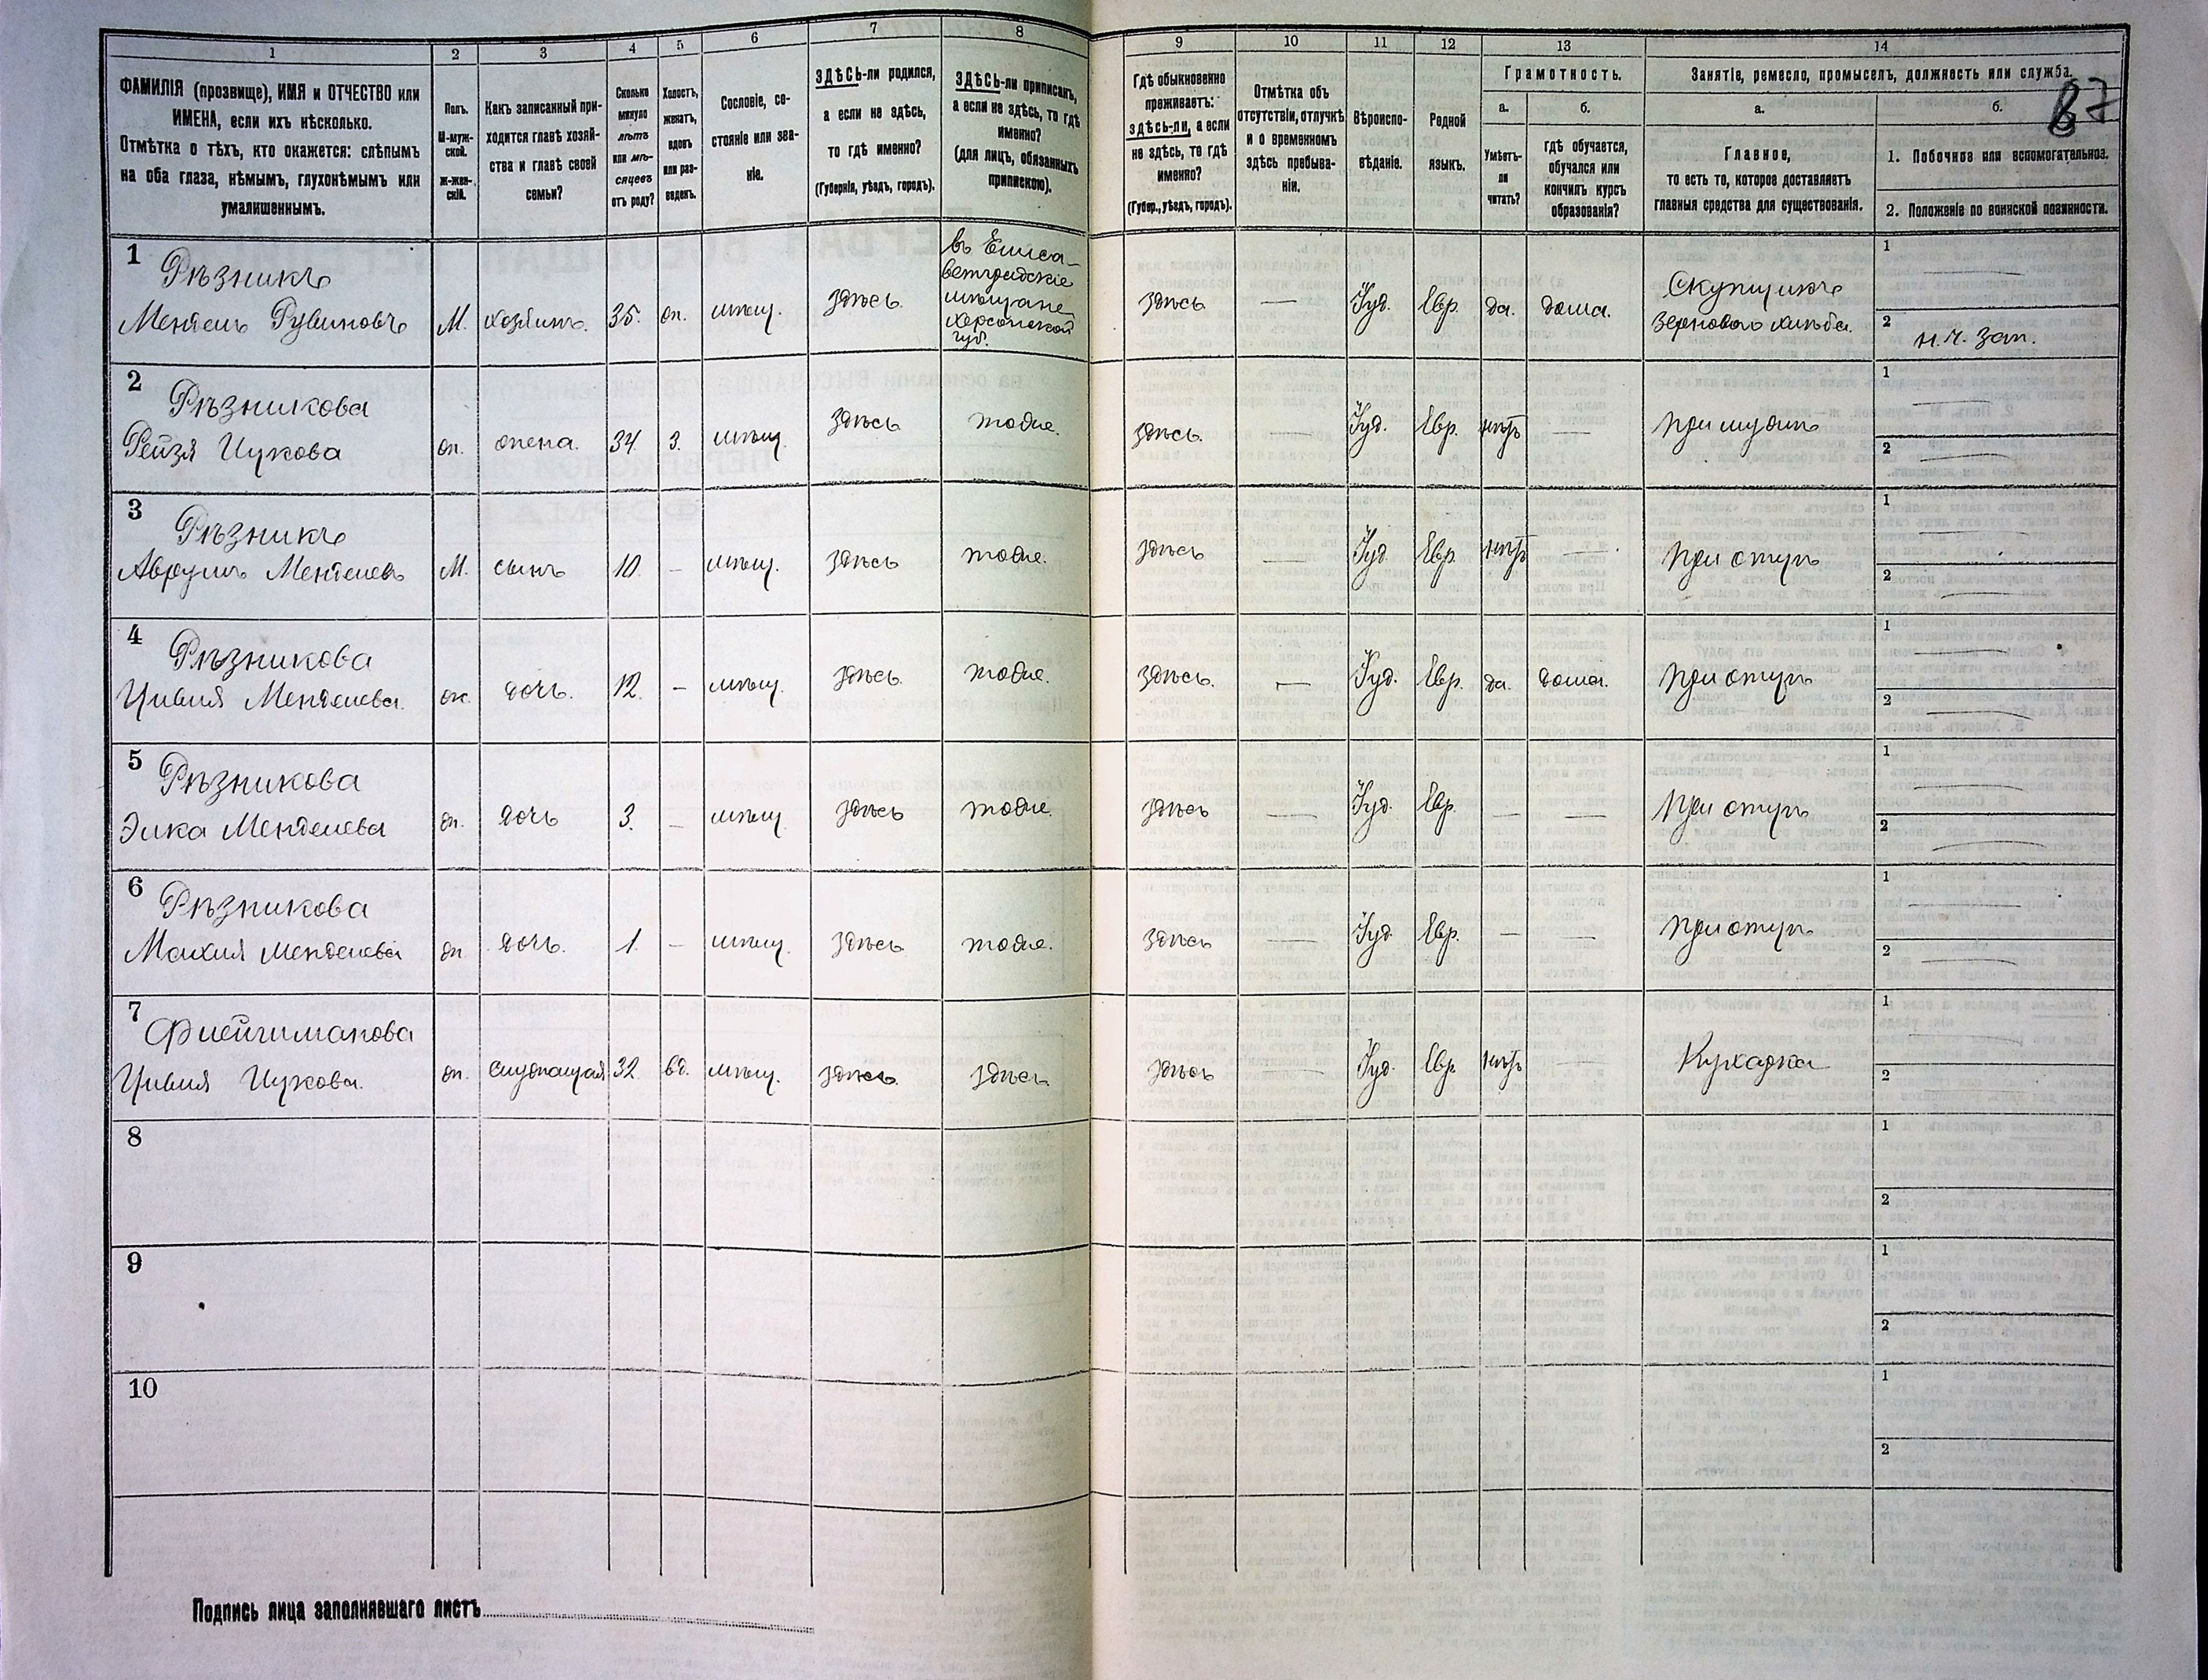 1
2
3
4
5
6
7
8
9
10
11
12
13
14
ФАМИЛІЯ (прозвище), ИМЯ и ОТЧЕСТВО или
ИМЕНА, если ихъ нѣсколько.
Отмѣтка о тѣхъ, кто окажется: слѣпымъ
на оба глаза, нѣмымъ, глухонѣмымъ или
умалишеннымъ.
Полъ.
М-муж-
ской.
ж-жен-
скій.
Какъ записанный при-
ходится главѣ хозяй-
ства и главѣ своей
семьи?
Сколько
минуло
лѣтъ
или мѣ-
сяцевъ
отъ роду?
Холостъ,
женатъ,
вдовъ
или раз-
веденъ.
Сословіе, со-
стояніе или зва-
ніе.
ЗДѢСЬ-ли родился,
а если не здѣсь,
то гдѣ именно?
(Губернія, уѣздъ, городъ).
ЗДѢСЬ-ли приписанъ,
а если не здѣсь, то гдѣ
именно?
(для лицъ, обязанныхъ
припискою).
Гдѣ обыкновенно
проживаетъ:
здѣсь-ли, а если
не здѣсь, то гдѣ
именно?
(Губер., уѣздъ, городъ).
Отмѣтка объ
отсутствіи, отлучкѣ
и о временномъ
здѣсь пребыва-
ніи.
Вѣроиспо-
вѣданіе.
Родной
языкъ.
Грамотность.
а.
Умѣетъ-
ли
читать?
б.
гдѣ обучается,
обучался или
кончилъ курсъ
образованія?
Занятіе, ремесло, промыселъ, должность или служба.
87
а.
Главное,
то есть то, которое доставляетъ
главныя средства для существованія.
б.
1. Побочное или вспомогательное.
2. Положеніе по воинской повинности.
1
Рѣзникъ
Мендель Рувиновъ
М.
хозяинъ.
35.
ж.
мѣщ.
здѣсь
въ Елиса-
ветградскіе
мѣщане
херсонской
губ.
здѣсь
—
Іуд.
Евр.
да.
дома.
Скупщикъ
зернового хлѣба.
1 —
2 н.ч. зап.
2
Рѣзникова
Рейзя Ицкова
ж.
жена.
34
З.
мѣщ.
здѣсь
тоже.
здѣсь.
—
Іуд.
Евр.
нѣтъ
—
при мужѣ
1 —
2 —
3
Рѣзникъ
Аврумъ Менделевъ
М.
сынъ
10.
—
мѣщ.
здѣсь
тоже.
здѣсь
—
Іуд
Евр.
нѣтъ
—
при отцѣ
1 —
2 —
4
Рѣзникова
Цивія Менделева.
ж.
дочь.
12.
—
мѣщ.
здѣсь
тоже.
здѣсь.
—
Іуд.
Евр.
да.
дома.
при отцѣ
1 —
2 —
5
Рѣзникова
Элка Менделева
ж.
дочь
3.
—
мѣщ
здѣсь
тоже.
здѣсь
—
Іуд.
Евр.
—
—
при отцѣ
1 —
2 —
6
Рѣзникова
Малхия Менделева
ж
дочь.
1.
—
мѣщ.
здѣсь
тоже.
здѣсь
—
Іуд
Евр.
—
—
при отцѣ
1 —
2 —
7
Флейшмакова
Цивія Ицкова.
ж.
служащая
32.
вд.
мѣщ.
здѣсь
здѣсь
здѣсь
—
Іуд.
Евр
нѣтъ
—
Кухарка
1 —
2 —
8
1
2
9
1
2
10
1
2
Подпись лица заполнявшаго листъ